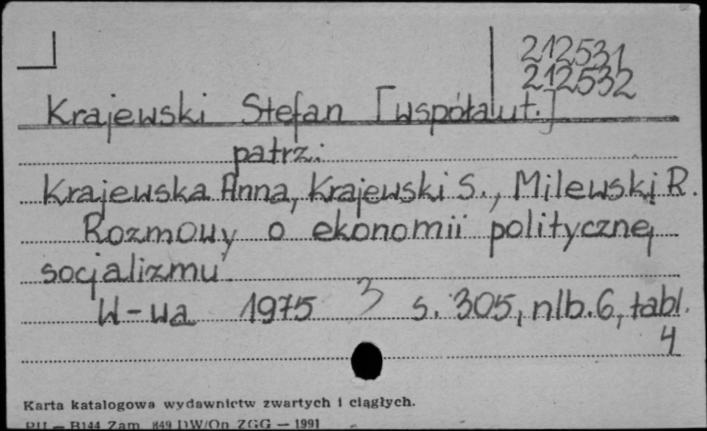 212531
212532
Krajewski Stefan [współaut.]
patrz:
Krajewska Anna, Krajewski S., Milewski R.
Rozmowy o ekonomii politycznej
socjalizmu
W-wa 1975 3 s. 305, nlb. 6, tabl.
4
Karta katalogowa wydawnictw zwartych i ciągłych.
PU — B144 Zam. 849 DW/On ZGG — 1991